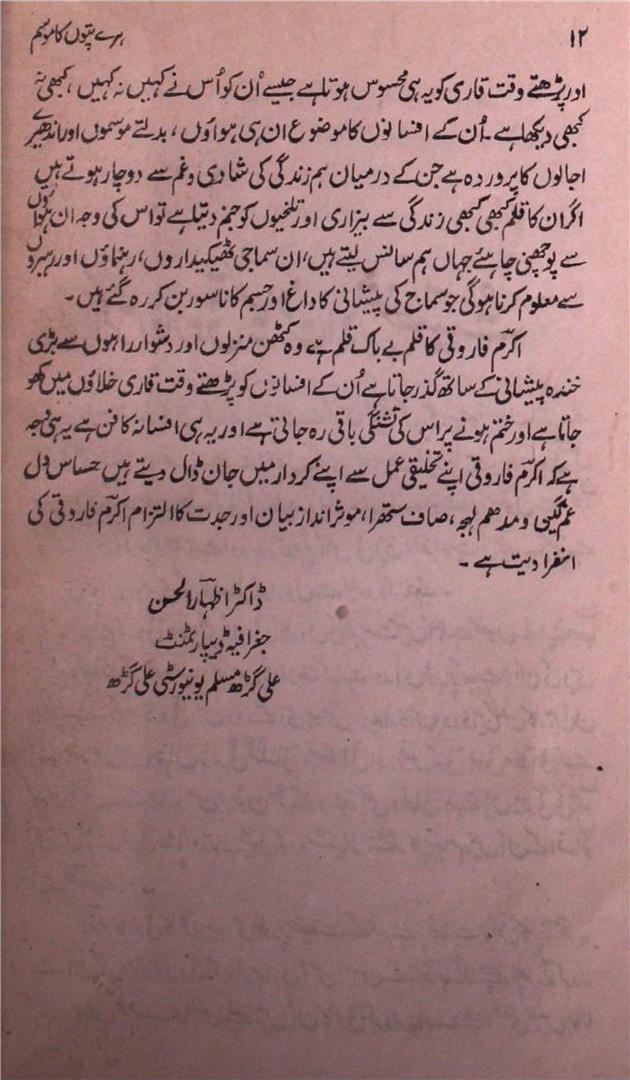 ۱۲ ہرے پتوں کا موسم
اور پڑھتے وقت قاری کو یہ ہی محسوس ہوتا ہے جیسے اُن کو اُس نے کہیں نہ کہیں، کبھی نہ
کبھی دیکھا ہے۔ اُن کے افسانوں کا موضوع ان ہی ہواؤں، بدلتے موسموں اور اندھیرے
اجالوں کا پروردہ ہے جن کے درمیان ہم زندگی کی شادی و غم سے دوچار ہوتے ہیں
اگر ان کا قلم کبھی کبھی زندگی سے بیزاری اور تلخیوں کو جنم دیتا ہے تو اس کی وجہ ان ہواؤں
سے پوچھنی چاہئے جہاں ہم سانس لیتے ہیں، ان سماجی ٹھیکیداروں، رہنماؤں اور رہبروں
سے معلوم کرنا ہوگی جو سماج کی پیشانی کا داغ اور جسم کا ناسور بن کر رہ گئے ہیں۔
اکرم فاروقی کا قلم بے باک قلم ہے وہ کٹھن منزلوں اور دشوار راہوں سے بڑی
خندہ پیشانی کے ساتھ گذر جاتا ہے اُن کے افسانوں کو پڑھتے وقت قاری خلاؤں میں کھو
جاتا ہے اور ختم ہونے پر اس کی تشنگی باقی رہ جاتی ہے اور یہ ہی افسانہ کا فن ہے یہ ہی وجہ
ہے کہ اکرم فاروقی اپنے تخلیقی عمل سے اپنے کردار میں جان ڈال دیتے ہیں حساس دل
غمگینی و مدھم لہجہ، صاف ستھرا، موثر انداز بیان اور جدت کا التزام اکرم فاروقی کی
انفرادیت ہے۔
ڈاکٹر اظہار الحسن
جغرافیہ ڈیپارٹمنٹ
علی گڑھ مسلم یونیورسٹی علی گڑھ